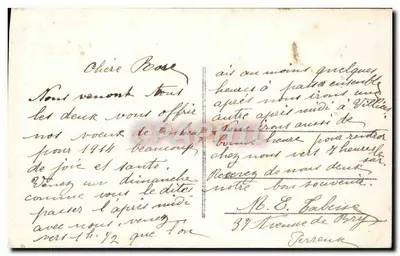 Chère Rose
Nous venont tous
les deux vous offrir
nos voeux le
pour 1914 beaucoup
de joie et santé.
Venez un dimanche
comme vous le dites
passer l'après midi
avec nous venez
vers 1h 1/2 que l'on
ais au moins quelques
heures à passe ensemble
après nous irons une
autre après midi à Villiers
irons aussi de
bonne heure pour rentrer
chez nous vers 7 heures
soir
Recevez de nous deux
notre bon souvenir.
M. E.
37 Avenue de Bry
Perreux